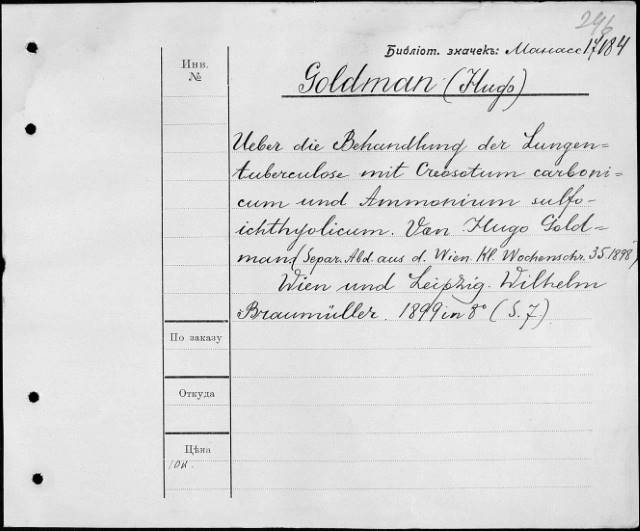 246
Библіот. значекъ: Манасс 17/184
Инв.
№
Goldman (Hugo)
Ueber die Behandlung der Lungen=
tuberculose mit Creosotum carboni=
cum und Ammonium sulfo-
ichthyolicum. Von Hugo Gold=
man (Separ. Abd. aus d. Wien. Kl. Wochenschr. 35 1898)
Wien und Leipzig. Wilhelm
Braumüller. 1899 in 8° (S. 7)
По заказу
Откуда
Цѣна